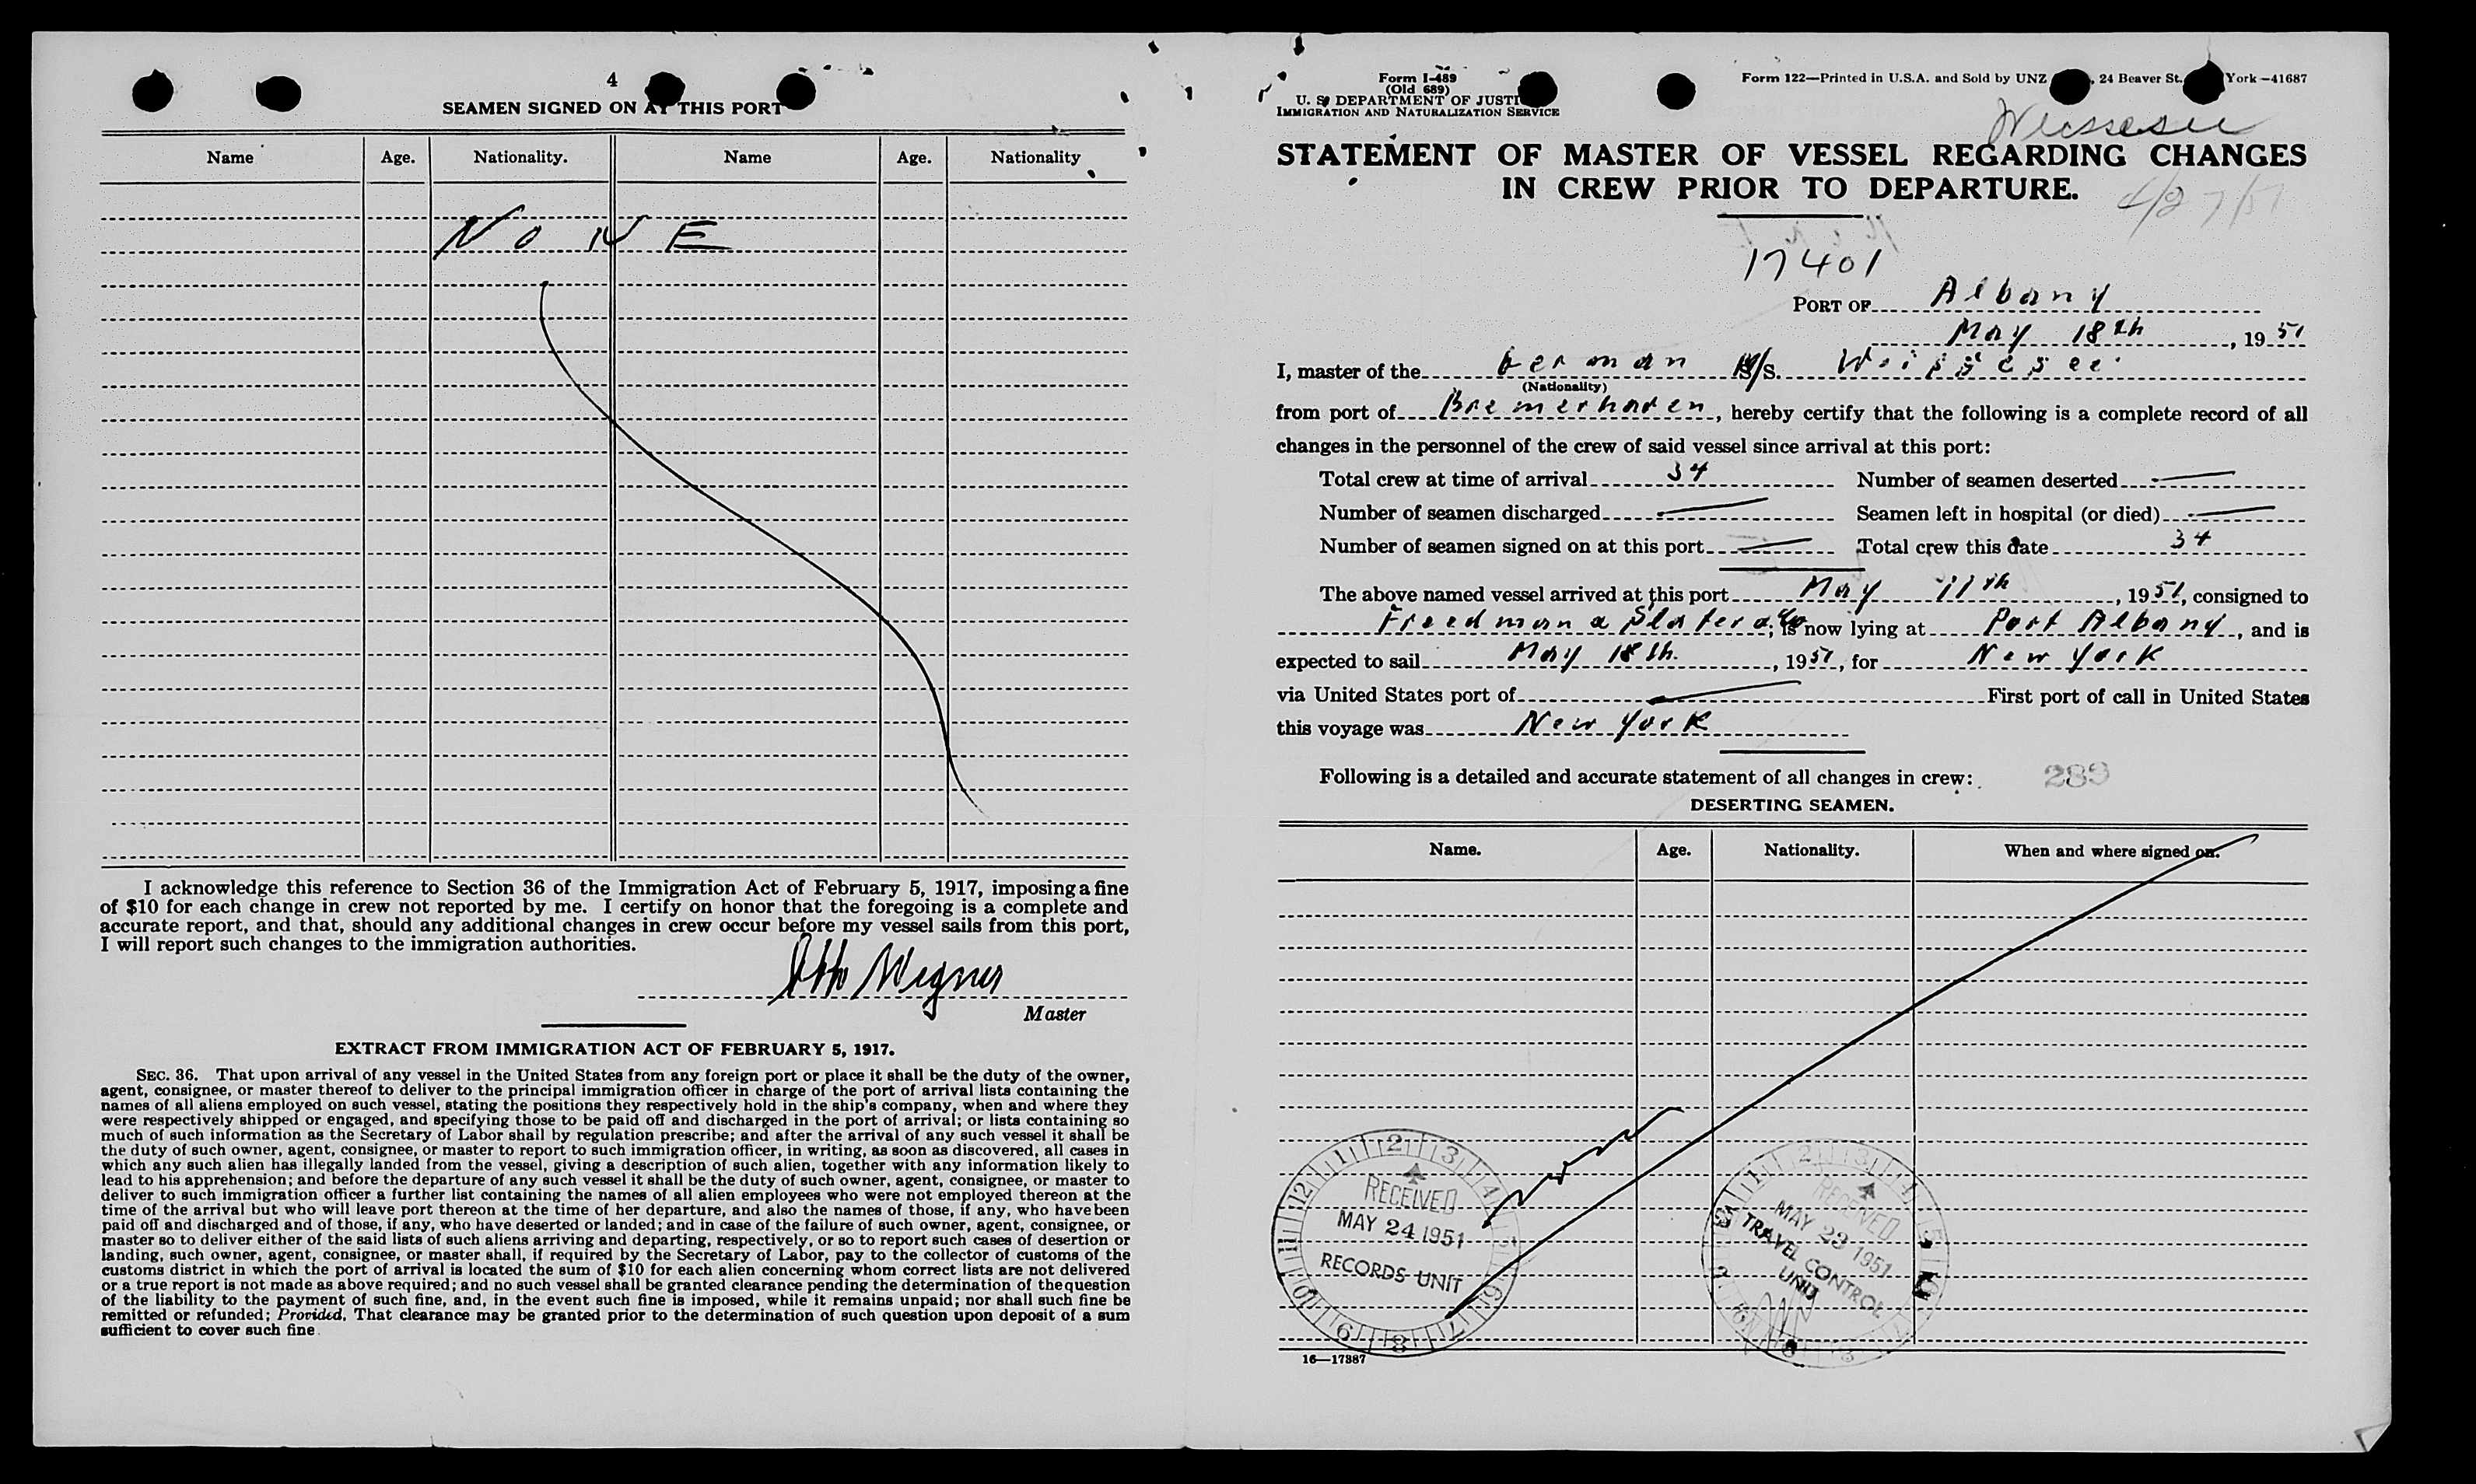 4
SEAMEN SIGNED ON AT THIS PORT
Name Age. Nationality. Name Age. Nationality
NONE
I acknowledge this reference to Section 36 of the Immigration Act of February 5, 1917, imposing a fine
of $10 for each change in crew not reported by me. I certify on honor that the foregoing is a complete and
accurate report, and that, should any additional changes in crew occur before my vessel sails from this port,
I will report such changes to the immigration authorities.
Otto Wegner
Master
EXTRACT FROM IMMIGRATION ACT OF FEBRUARY 5, 1917.
SEC. 36. That upon arrival of any vessel in the United States from any foreign port or place it shall be the duty of the owner,
agent, consignee, or master thereof to deliver to the principal immigration officer in charge of the port of arrival lists containing the
names of all aliens employed on such vessel, stating the positions they respectively hold in the ship's company, when and where they
were respectively shipped or engaged, and specifying those to be paid off and discharged in the port of arrival; or lists containing so
much of such information as the Secretary of Labor shall by regulation prescribe; and after the arrival of any such vessel it shall be
the duty of such owner, agent, consignee, or master to report to such immigration officer, in writing, as soon as discovered, all cases in
which any such alien has illegally landed from the vessel, giving a description of such alien, together with any information likely to
lead to his apprehension; and before the departure of any such vessel it shall be the duty of such owner, agent, consignee, or master to
deliver to such immigration officer a further list containing the names of all alien employees who were not employed thereon at the
time of the arrival but who will leave port thereon at the time of her departure, and also the names of those, if any, who have been
paid off and discharged and of those, if any, who have deserted or landed; and in case of the failure of such owner, agent, consignee, or
master so to deliver either of the said lists of such aliens arriving and departing, respectively, or so to report such cases of desertion or
landing, such owner, agent, consignee, or master shall, if required by the Secretary of Labor, pay to the collector of customs of the
customs district in which the port of arrival is located the sum of $10 for each alien concerning whom correct lists are not delivered
or a true report is not made as above required; and no such vessel shall be granted clearance pending the determination of the question
of the liability to the payment of such fine, and, in the event such fine is imposed, while it remains unpaid; nor shall such fine be
remitted or refunded; Provided, That clearance may be granted prior to the determination of such question upon deposit of a sum
sufficient to cover such fine.
Form I-489
(Old 689)
U. S. DEPARTMENT OF JUSTI
IMMIGRATION AND NATURALIZATION SERVICE
Form 122—Printed in U.S.A. and Sold by UNZ , 24 Beaver St., York—41687
Weissesee
STATEMENT OF MASTER OF VESSEL REGARDING CHANGES
IN CREW PRIOR TO DEPARTURE.
4/27/51
17401
PORT OF Albany
May 18th, 1951
I, master of the German M/S. Weissesee
(Nationality)
from port of Bremerhaven, hereby certify that the following is a complete record of all
changes in the personnel of the crew of said vessel since arrival at this port:
Total crew at time of arrival 34 Number of seamen deserted —
Number of seamen discharged — Seamen left in hospital (or died) —
Number of seamen signed on at this port — Total crew this date 34
The above named vessel arrived at this port May 11th, 1951, consigned to
Freedman & Slater Co; is now lying at Port Albany, and is
expected to sail May 18th, 1951, for New York
via United States port of — First port of call in United States
this voyage was New York
Following is a detailed and accurate statement of all changes in crew: 289
DESERTING SEAMEN.
Name. Age. Nationality. When and where signed on.
RECEIVED
MAY 24 1951
RECORDS UNIT
RECEIVED
MAY 23 1951
TRAVEL CONTROL
UNIT
16—17387